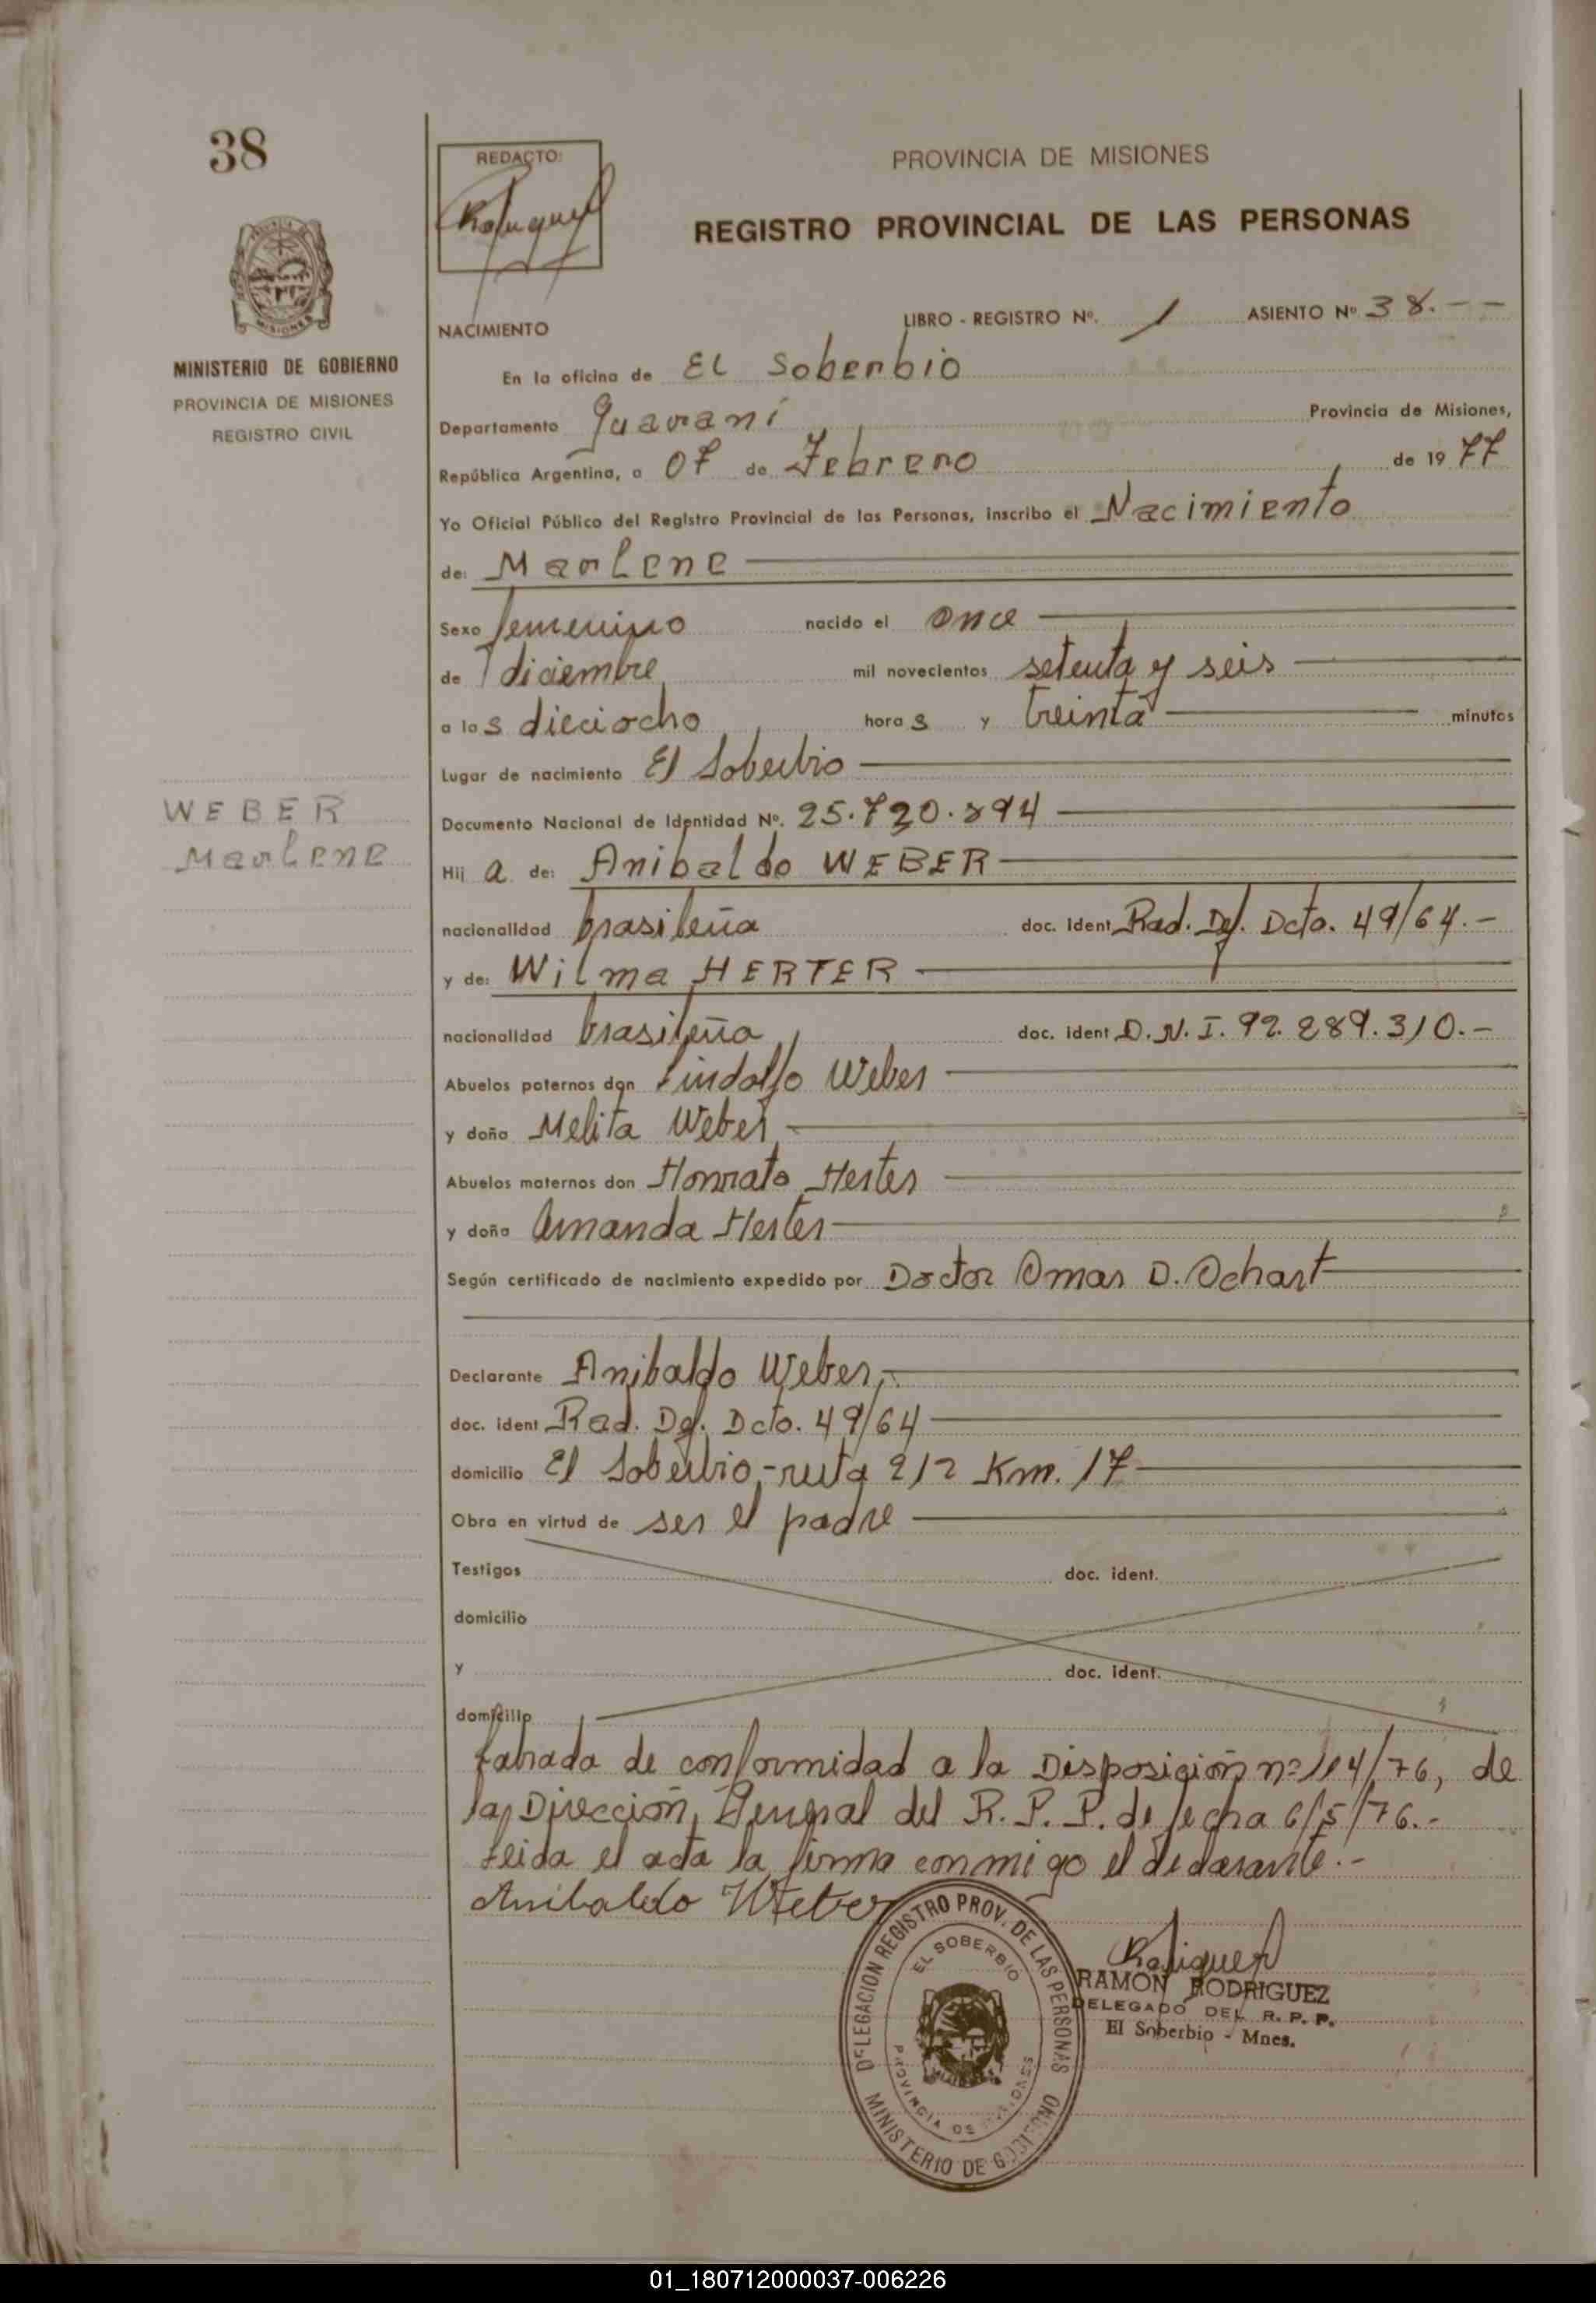 38
REDACTO:
PROVINCIA DE MISIONES
REGISTRO PROVINCIAL DE LAS PERSONAS
MISIONES
MINISTERIO DE GOBIERNO
PROVINCIA DE MISIONES
REGISTRO CIVIL
NACIMIENTO LIBRO - REGISTRO Nº. 1 ASIENTO Nº 38.--
En la oficina de El Soberbio
Departamento Guaraní Provincia de Misiones,
República Argentina, a 07 de Febrero de 1977
Yo Oficial Público del Registro Provincial de las Personas, inscribo el Nacimiento
de: Marlene
Sexo femenino nacido el once
de diciembre mil novecientos setenta y seis
a las dieciocho horas y treinta minutos
Lugar de nacimiento El Soberbio
WEBER
Marlene
Documento Nacional de Identidad Nº. 25.720.894
Hija de: Anibaldo WEBER
nacionalidad brasileña doc. ident Rad. Def. Dcto. 49/64.-
y de: Wilma HERTER
nacionalidad brasileña doc. ident D.N.I. 92.289.310.-
Abuelos paternos don Lindolfo Weber
y doña Melita Weber
Abuelos maternos don Honrato Herter
y doña Amanda Herter
Según certificado de nacimiento expedido por Doctor Omar D. Ochart
Declarante Anibaldo Weber,-
doc. ident Rad. Def. Dcto. 49/64
domicilio El Soberbio,-ruta 212 Km. 17
Obra en virtud de ser el padre
Testigos doc. ident.
domicilio
y doc. ident.
domicilio
Labrada de conformidad a la Disposición nº 114/76, de
la Dirección General del R.P.P. de fecha 6/5/76.-
Leida el acta la firma conmigo el declarante.-
Anibaldo Weber
DELEGACION REGISTRO PROV. DE LAS PERSONAS
EL SOBERBIO
PROVINCIA DE MISIONES
MINISTERIO DE GOBIERNO
RAMON RODRIGUEZ
DELEGADO DEL R. P. P.
El Soberbio - Mnes.
01_180712000037-006226